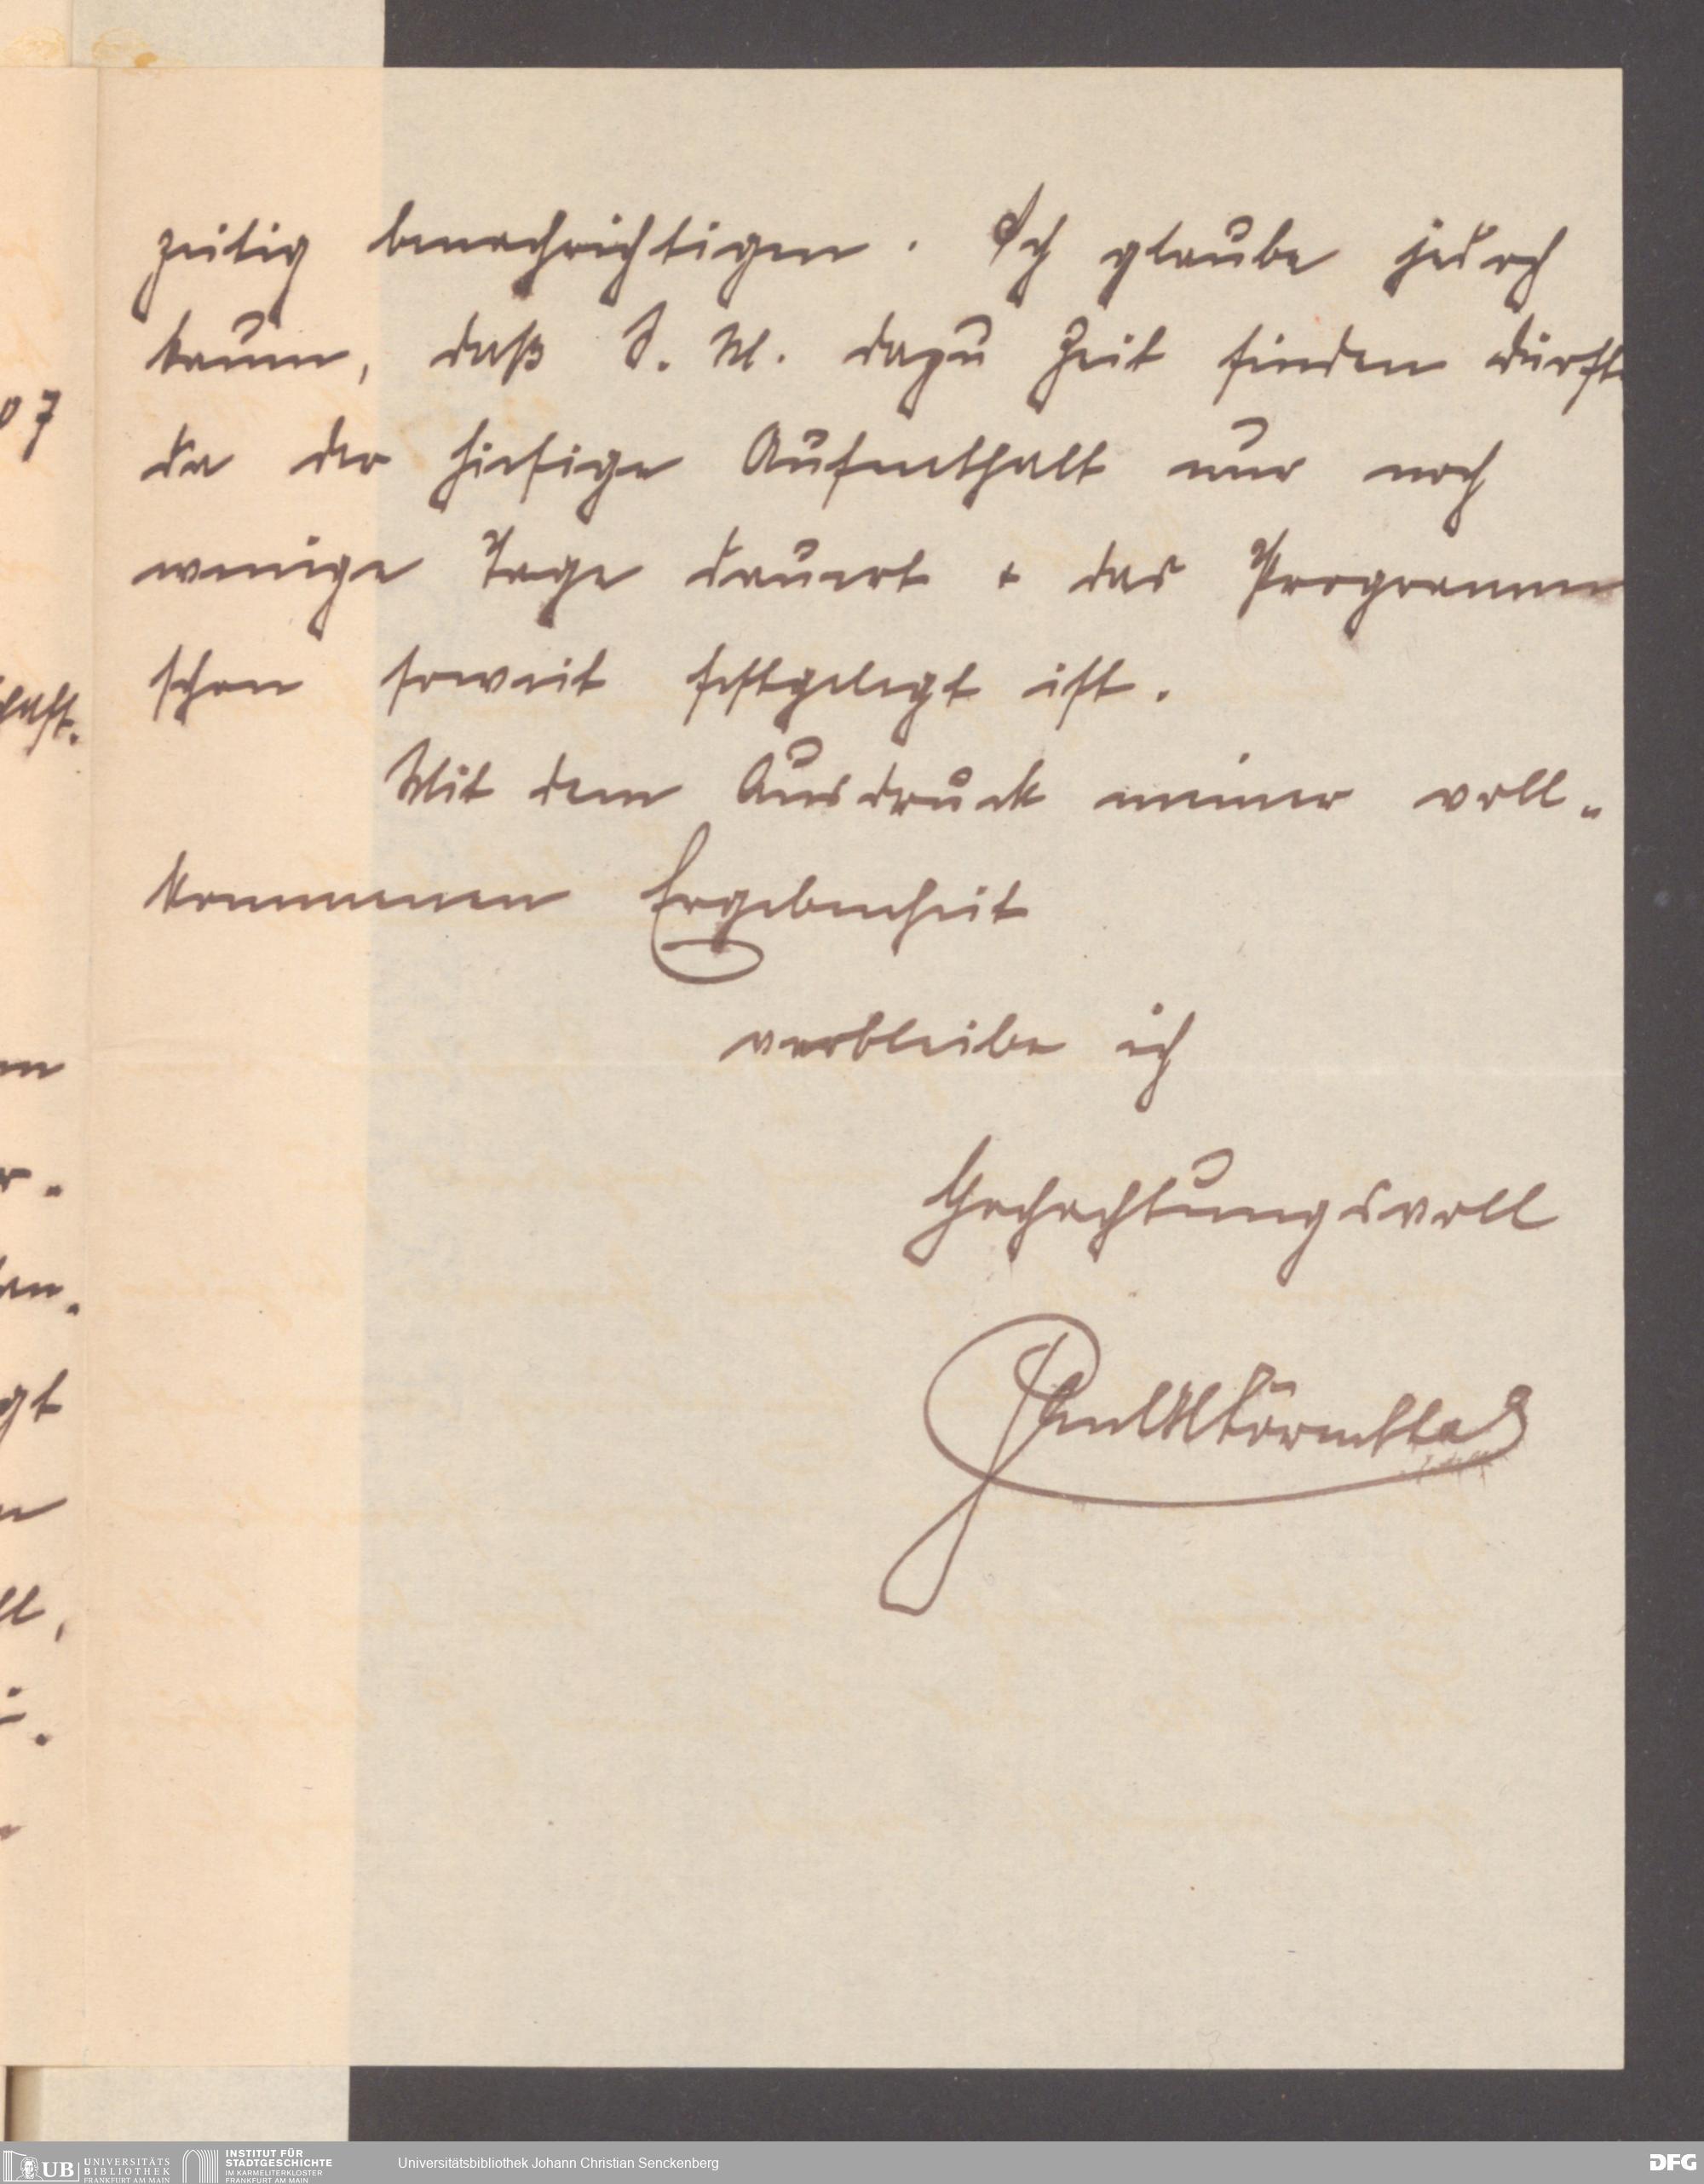 zeitig benachrichtigen. Ich glaube jedoch
kaum, daß S. M. dazu Zeit finden dürft
da der hiesige Aufenthalt nur noch
wenige Tage dauert + das Programm
schon soweit festgelegt ist.
Mit dem Ausdruck meiner voll-
kommenen Ergebenheit
verbleibe ich
Hochachtungsvoll
07
UB UNIVERSITÄTS
BIBLIOTHEK
FRANKFURT AM MAIN
INSTITUT FÜR
STADTGESCHICHTE
IM KARMELITERKLOSTER
FRANKFURT AM MAIN
Universitätsbibliothek Johann Christian Senckenberg
DFG